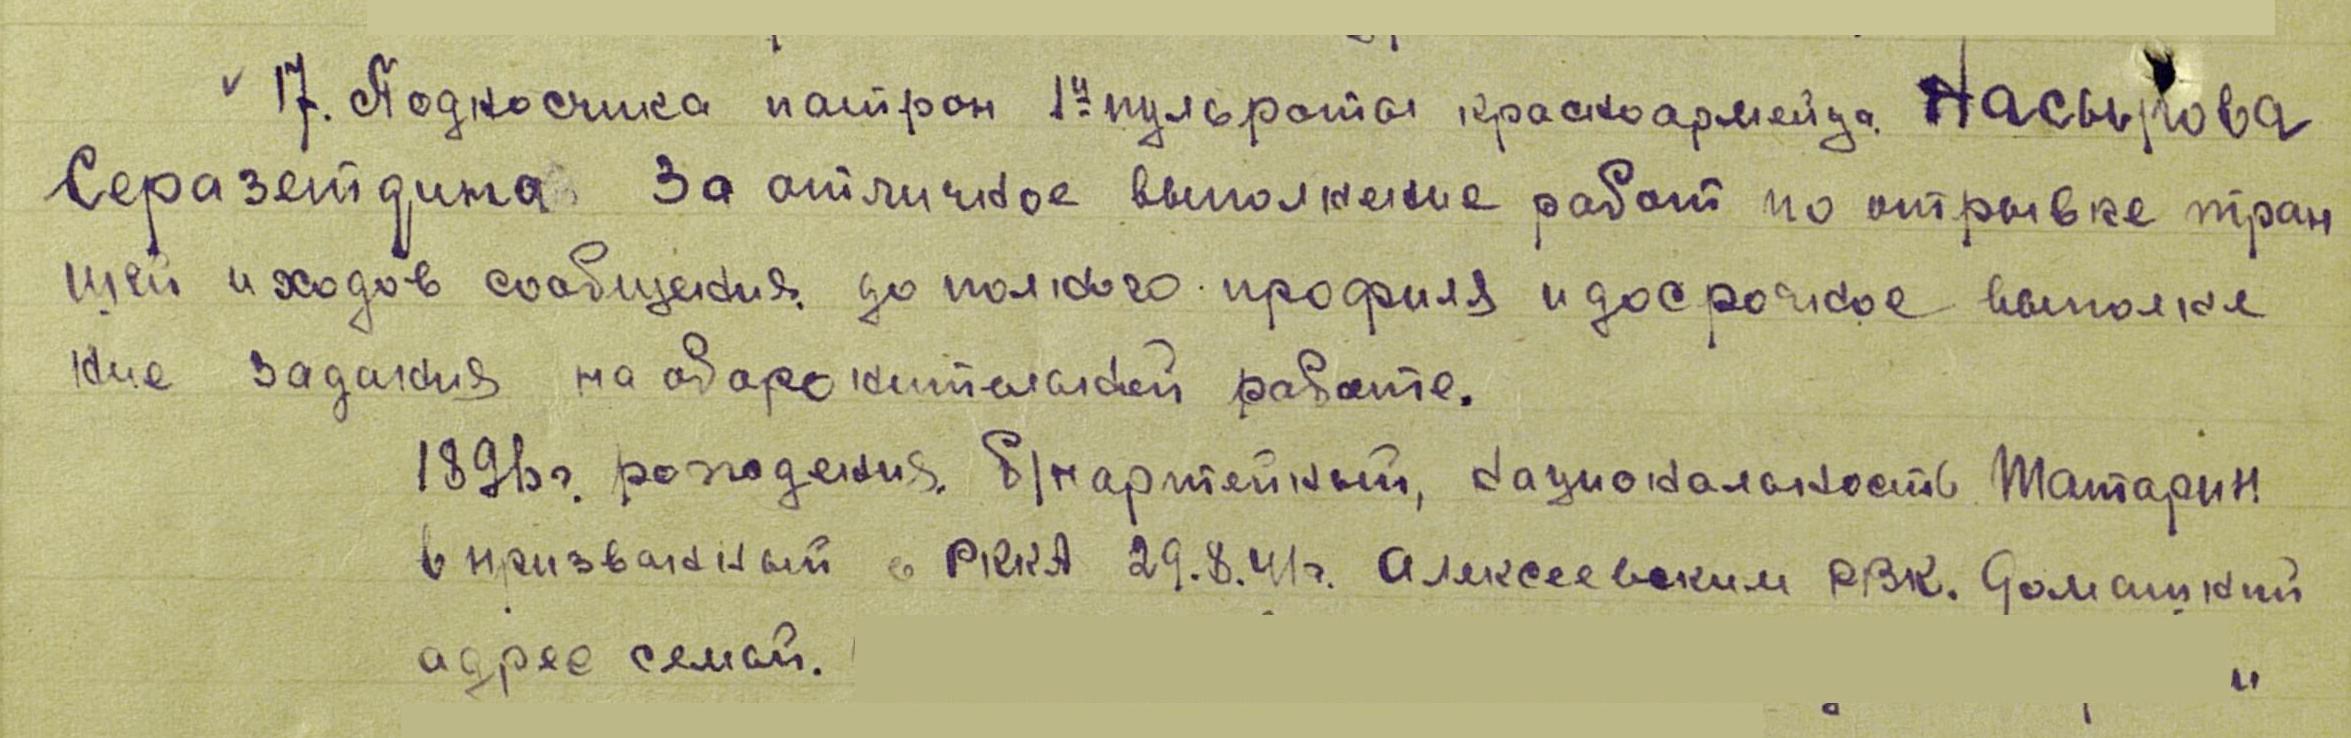 17. Подносчика патрон 1й пульроты красноармейца Насырова
Серазетдина За отличное выполнение работ по отрывке тран
шей и ходов сообщения до полного профиля и досрочное выполне
ние задания на оборонительной работе.
рождения, б/партейный, национальность Татарин
призванный в РККА 29.8.41г. Алексеевским РВК. Домашний
адрес семьи.